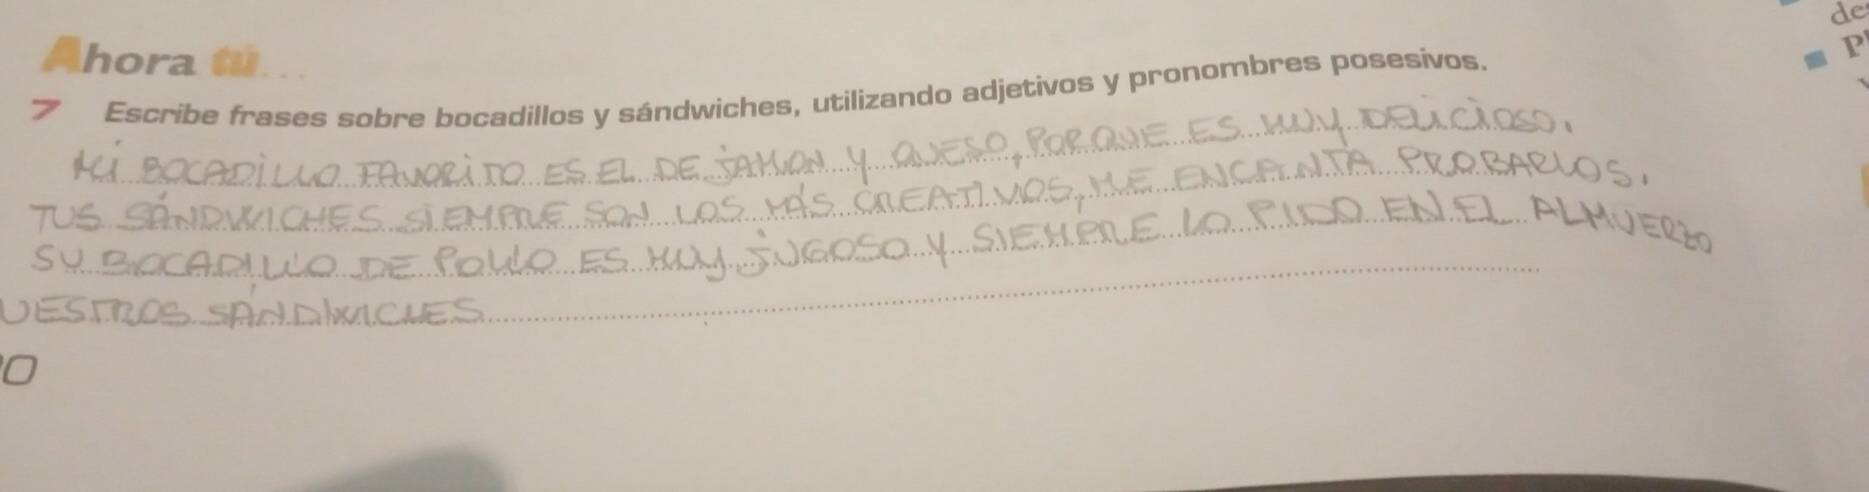 de
P
Ahora tú...
7 Escribe frases sobre bocadillos y sándwiches, utilizando adjetivos y pronombres posesivos.
Mi BOCADiLLO FAVORiTO ES EL DE JAMON Y QUESO, PORQUE ES MUY DELiCiOSO.
TUS SÁNDWICHES SiEMPRE SON LOS MÁS CREATIVOS, ME ENCANTA PROBARLOS.
SU BOCADILLO DE POLLO ES MUY JUGOSO Y SIEMPRE LO PIDO EN EL ALMUERZO
UESTROS SÁNDWICHES
0